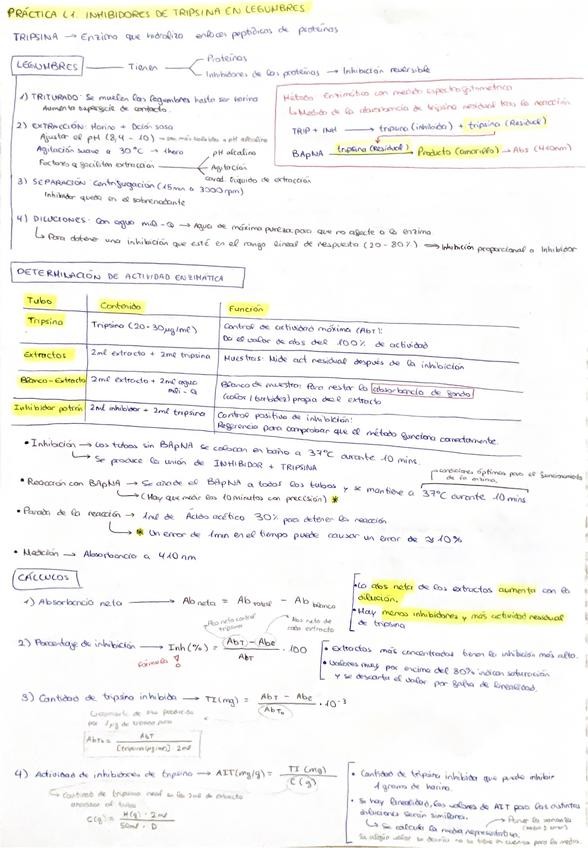 PRÁCTICA L1. INHIBIDORES DE TRIPSINA EN LEGUMBRES
TRIPSINA → Enzima que hidroliza enlaces peptídicos de proteínas
LEGUMBRES → Tienen
Proteínas
Inhibidores de las proteínas → Inhibición reversible
1) TRITURADO: Se muelen las legumbres hasta ser harina
Aumenta superficie de contacto.
2) EXTRACCIÓN: Harina + Dcion sosa
Ajustar el pH (8,4 - 10) → son más solubles a pH alcalino
Agitación suave a 30°C → 1 hora
Factores q facilitan extracción
pH alcalino
Agitación
líquido de extracción
3) SEPARACIÓN: Centrifugación (15 min a 3000 rpm)
Inhibidor queda en el sobrenadante
4) DILUCIONES: Con agua mili-Q → Agua de máxima pureza para que no afecte a la enzima
Para obtener una inhibición que esté en el rango lineal de respuesta (20-80%) ⟹ Inhibición proporcional a Inhibidor
Método Enzimático con medida espectrofotométrica
Medida de la absorbancia de tripsina residual tras la reacción
TRIP + INH → tripsina (inhibida) + tripsina (Residual)
BApNA tripsina (residual) → Producto (amarillo) → Abs (410nm)
DETERMINACIÓN DE ACTIVIDAD ENZIMÁTICA
Tubo Contenido Función
Tripsina Tripsina (20-30µg/ml) Control de actividad máxima (AbT):
Da el valor de abs del 100% de actividad
Extractos 2ml extracto + 2ml tripsina Muestras: Mide act residual después de la inhibición
Blanco-Extracto 2ml extracto + 2ml agua mili-Q Blanco de muestra: Para restar la absorbancia de fondo
(color / turbidez) propia del extracto
Inhibidor patrón 2ml inhibidor + 2ml tripsina Control positivo de inhibición:
Referencia para comprobar que el método funciona correctamente.
• Inhibición → Los tubos sin BApNA se colocan en baño a 37°C durante 10 mins.
Se produce la unión de INHIBIDOR + TRIPSINA
condiciones óptimas para el funcionamiento de la enzima.
• Reacción con BApNA → Se añade el BApNA a todos los tubos y se mantiene a 37°C durante 10 mins
(Hay que medir los 10 minutos con precisión) *
• Parada de la reacción → 1ml de Ácido acético 30% para detener la reacción
* Un error de 1min en el tiempo puede causar un error de ≈10%
• Medición → Absorbancia a 410nm
CÁLCULOS
1) Absorbancia neta → Ab neta = Ab total - Ab blanco
• La abs neta de los extractos aumenta con la dilución.
• Hay menos inhibidores y más actividad residual de tripsina
Abs neta control tripsina
Abs neta de cada extracto
2) Porcentaje de inhibición → Inh (%) = (AbT - AbE) / AbT · 100
fórmula !
• Extractos más concentrados tienen la inhibición más alta.
• Valores muy por encima del 80% indican saturación
y se descarta el valor por falta de linealidad.
3) Cantidad de tripsina inhibida → TI(mg) = (AbT - AbE) / AbT₀ · 10⁻³
por 1 µg de tripsina pura
AbT₀ = AbT / [tripsina(µg/ml)] · 2ml
4) Actividad de inhibidores de tripsina → AIT(mg/g) = TI (mg) / C (g)
Cantidad de harina real en los 2ml de extracto
C(g) = H(g) · 2ml / 50ml · D
• Cantidad de tripsina inhibida que puede inhibir
1 gramo de harina.
• Si hay linealidad, los valores de AIT para las distintas
diluciones serán similares.
Se calcula la media representativa.